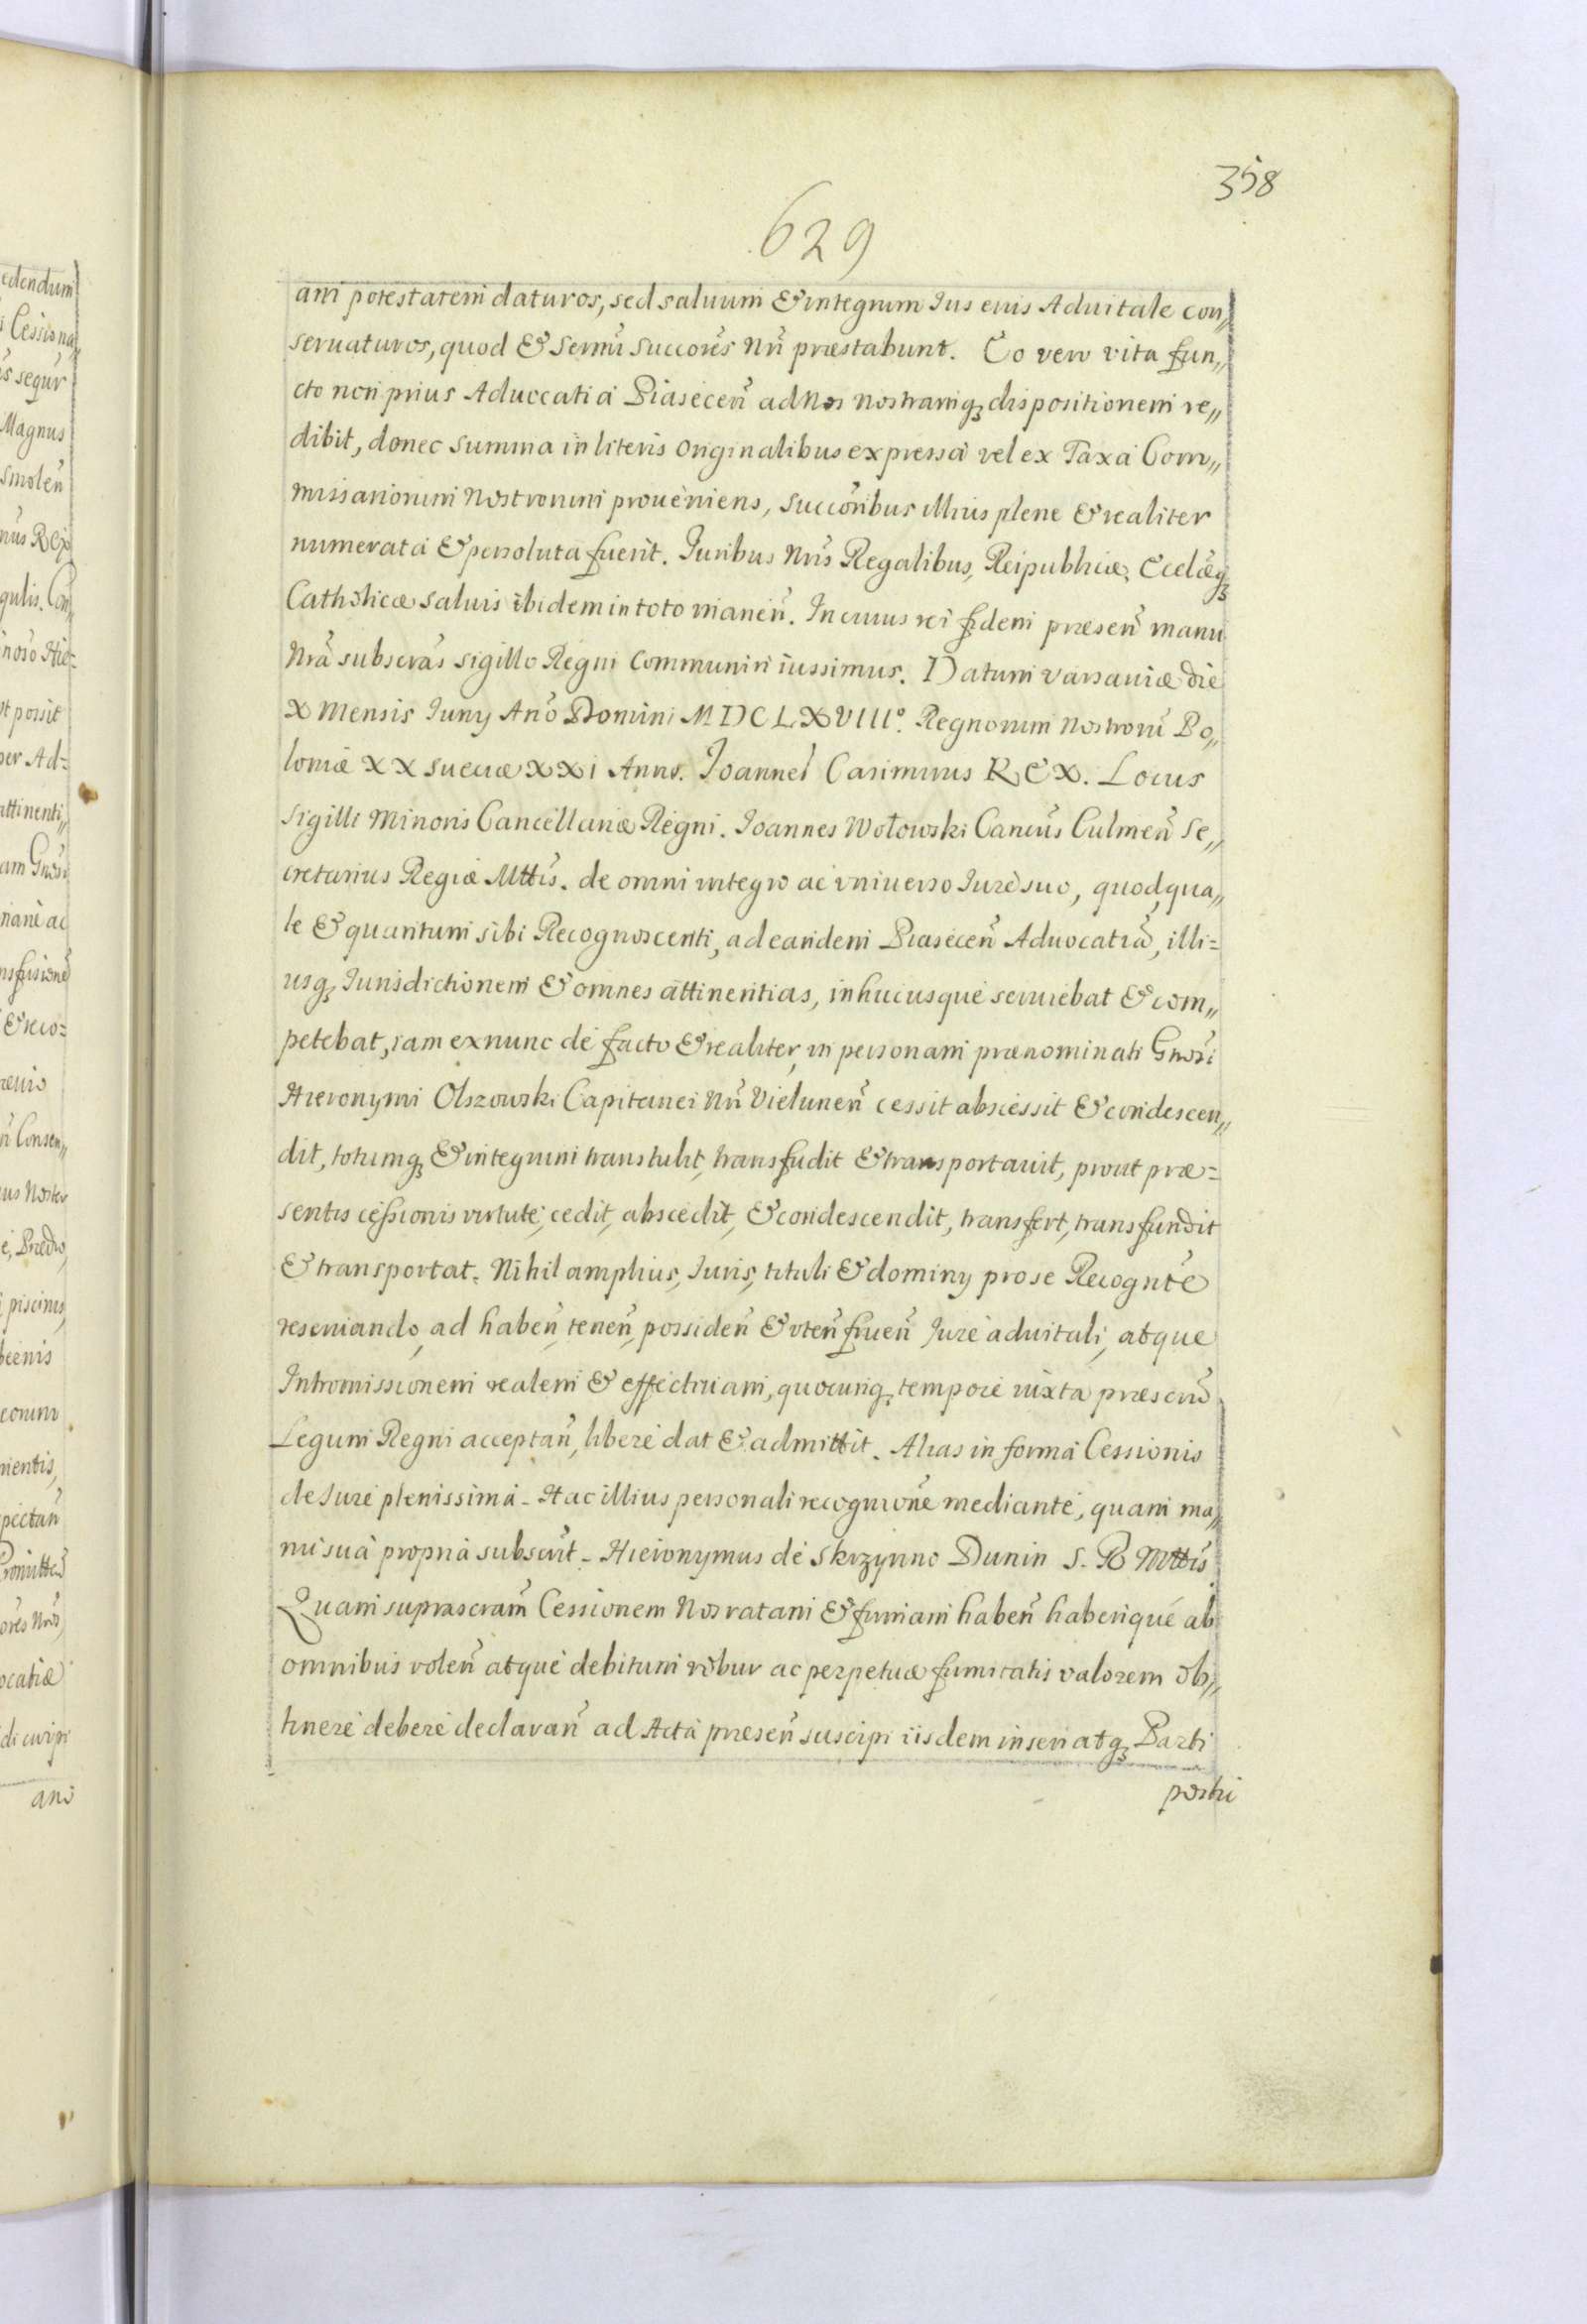 358
629
am potestatem daturos, sed saluum & integrum Ius eius Aduitale con„
seruaturos, quod & Sermi Succores Nri præstabunt. Eo vero vita fun„
cto non prius Aduocatia Piasecen ad Nos nostramq dispositionem re„
dibit, donec summa in literis originalibus expressa vel ex Taxa Com„
missariorum Nostrorum proueniens, succoribus illius plene & realiter
numerata & persoluta fuerit. Iuribus Nris Regalibus, Reipublicæ, Ecclæq
Catholicæ saluis ibidem in toto manen. In cuius rei fidem præsen manu
Nra subscras sigillo Regni communiri iussimus. Datum varsauiæ die
X Mensis Iuny Ano Domini MDCLXVIIIº. Regnorum Nostroru Po„
loniæ XX sueciæ XXI Anno. Joannes Casimirus REX. Locus
sigilli Minoris Cancellariæ Regni. Joannes Wołowski Cancus Culmen Se„
cretarius Regiæ Mttis. de omni integro ac vniuerso Iure suo, quod, qua„
le & quantum sibi Recognoscenti, ad eandem Piasecen Aduocatia, illi=
usq Iurisdictionem & omnes attinentias, inhucusque seruiebat & com„
petebat, iam exnunc de facto & realiter, in personam prænominati Gnosi
Hieronymi Olszowski Capitanei Nri Vielunen cessit abscessit & condescen„
dit, totumq & integrum transtulit, transfudit & transportauit, prout præ=
sentis cessionis virtute, cedit, abscedit, & condescendit, transfert, transfundit
& transportat. Nihil amplius, Iuris, tituli & dominy pro se Recognte
reseruando, ad haben, tenen, possiden & vten fruen Jure aduitali, atque
Intromissionem realem & effectiuam, quocunq tempore iuxta præscru
Legum Regni acceptan, libere dat & admittit. Alias in forma Cessionis
de Iure plenissima. Hac illius personali recognione mediante, quam ma„
nu sua propria subscrit. Hieronymus de Skrzynno Dunin S. R Mttis
Quam suprascram Cessionem Nos ratam & firmam haben haberique ab
omnibus volen atque debitum robur ac perpetuæ firmitatis valorem ob„
tinere debere declaran ad Acta præsen suscipi iisdem inseri atq Parti
postu